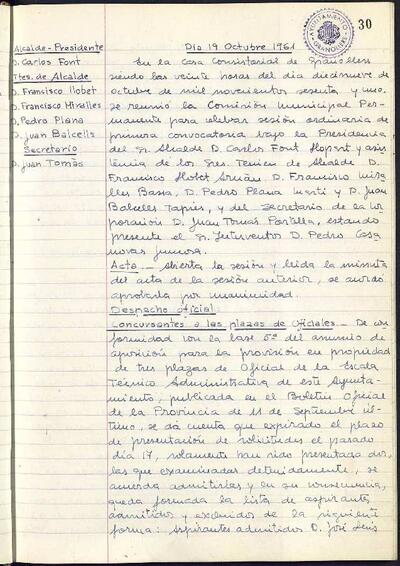 30
AYUNTAMIENTO
GRANOLLERS
Alcalde-Presidente
D. Carlos Font
Ttes. de Alcalde
D. Francisco Llobet
D. Francisco Miralles
D. Pedro Plana
D. Juan Balcells
Secretario
D. Juan Tomás
Día 19 Octubre 1961
En la Casa Consistorial de Granollers
siendo las veinte horas del día diecinueve de
octubre de mil novecientos sesenta y uno,
se reunió la Comisión Municipal Per-
manente para celebrar sesión ordinaria de
primera convocatoria bajo la Presidencia
del Sr. Alcalde D. Carlos Font Llopart y asis
tencia de los Sres. Tenientes de Alcalde D.
Francisco Llobet Arnán D. Francisco Mira
lles Bassa, D. Pedro Plana Martí y D. Juan
Balcells Tapies, y del Secretario de la Cor
poración D. Juan Tomás Portella, estando
presente el Sr. Interventor D. Pedro Casa
novas Junosa.
Acta.- Abierta la sesión y leída la minuta
del acta de la sesión anterior, se acordó
aprobarla por unanimidad.
Despacho oficial
Concursantes a las plazas de Oficiales.- De con
formidad con la base 5ª del anuncio de
oposición para la provisión en propiedad
de tres plazas de Oficial de la Escala
Técnico Administrativa de este Ayunta-
miento, publicada en el Boletín Oficial
de la Provincia de 11 de Septiembre úl-
timo, se dá cuenta que expirado el plazo
de presentación de solicitudes el pasado
día 17, solamente han sido presentadas dos,
las que examinadas detenidamente, se
acuerda admitirlas y en su consecuencia,
queda formada la lista de aspirantes
admitidos y excluidos de la siguiente
forma: Aspirantes admitidos D. José Luis